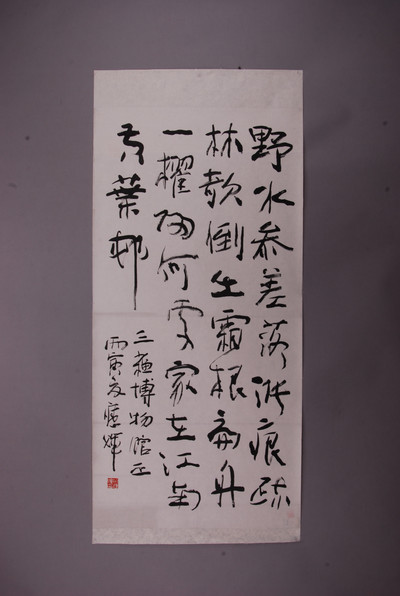 野水参差落涨痕疏
林欹倒出霜根扁舟
一櫂归何处家在江南
黄葉邨
三蘇博物馆正
丙寅夏應輝